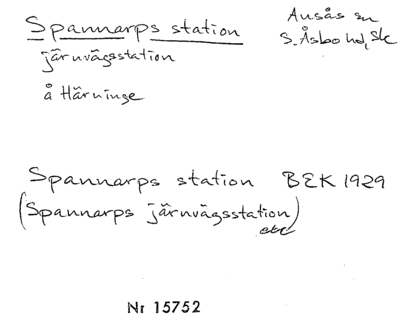 Spannarps station
Ausås sn
S. Åsbo hd, Sk
järnvägsstation
å Härninge
Spannarps station BEK 1929
(Spannarps järnvägsstation)
ek
Nr 15752